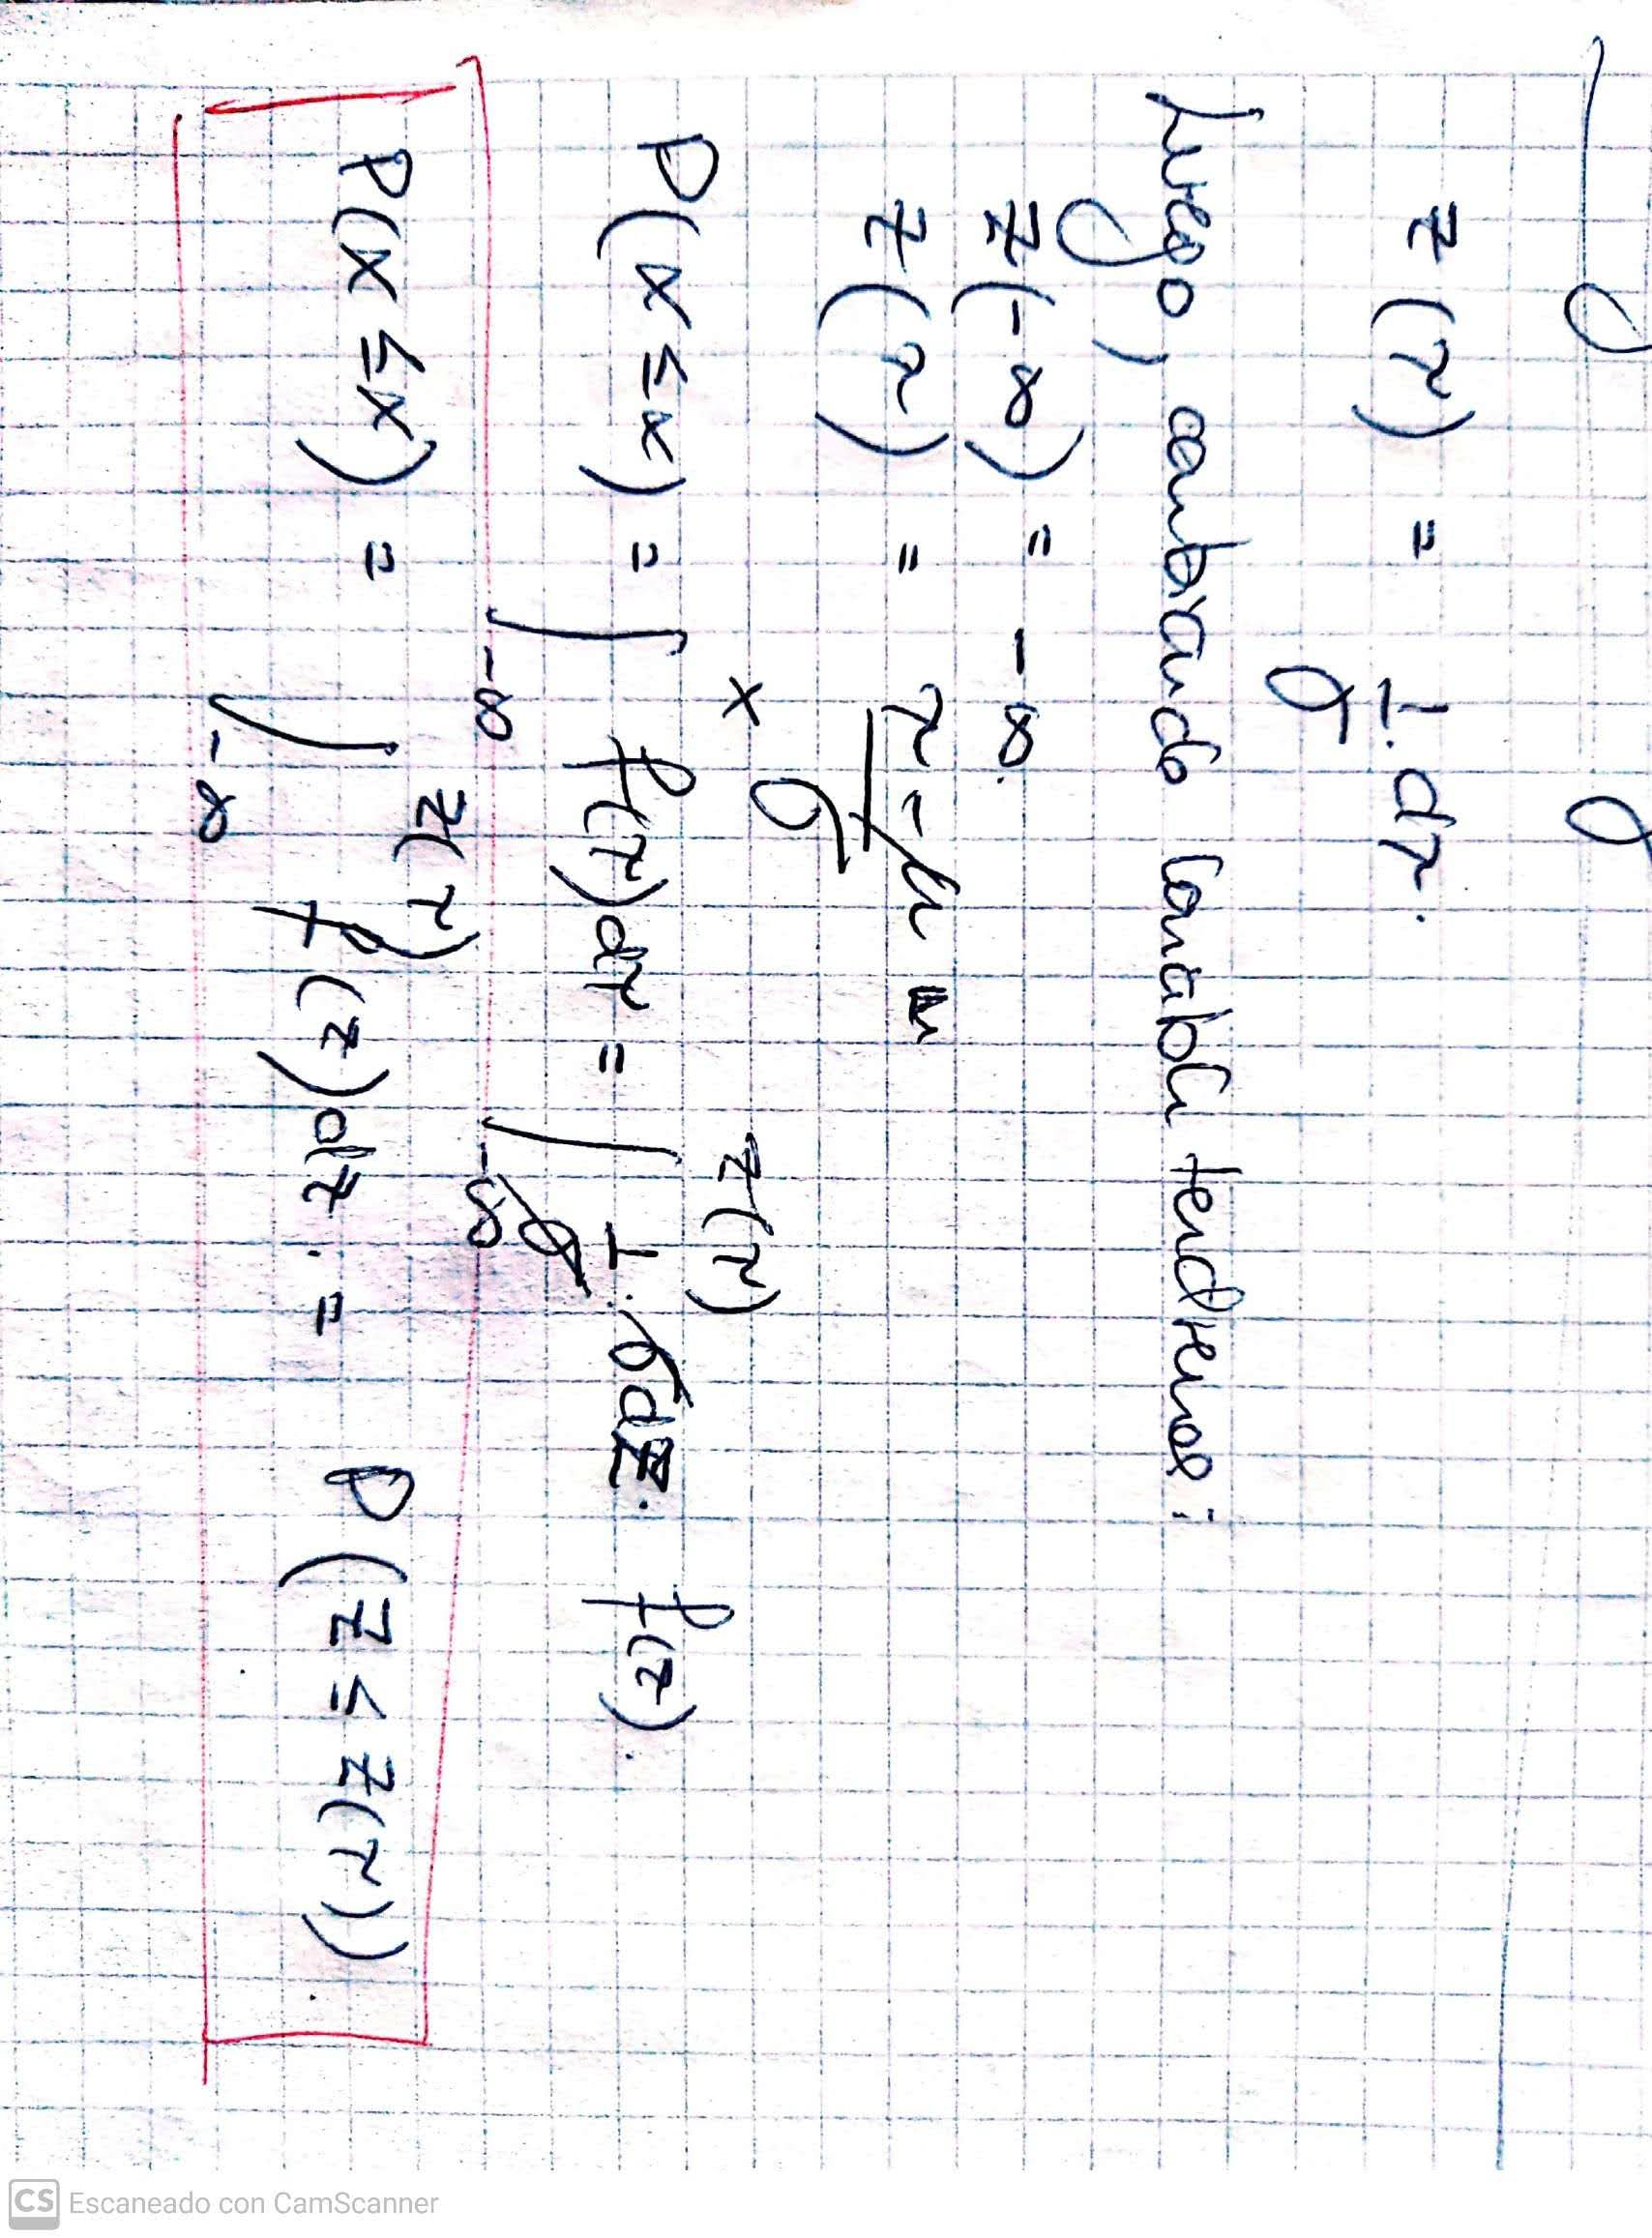 z(x) = 1/σ · dx.
Luego, cambiando variable tendremos:
z(-∞) = -∞.
z(x) = (x-μ)/σ
P(X≤x) = ∫_{-∞}^{x} f(x)dx = ∫_{-∞}^{z(x)} 1/σ · σdz. f(z).
P(X≤x) = ∫_{-∞}^{z(x)} f(z)dz. = P(Z≤z(x))
CS Escaneado con CamScanner